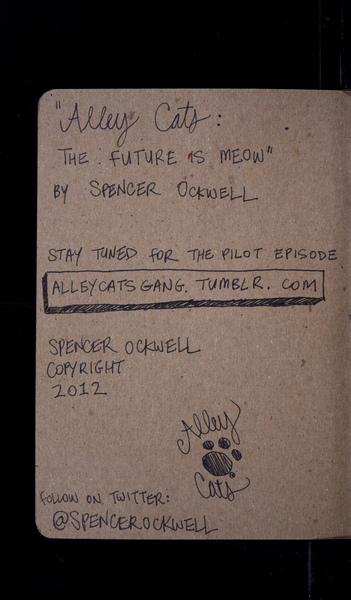 "Alley Cats:
THE FUTURE IS MEOW"
BY SPENCER OCKWELL
STAY TUNED FOR THE PILOT EPISODE
ALLEYCATSGANG.TUMBLR.COM
SPENCER OCKWELL
COPYRIGHT
2012
Alley
Cats
FOLLOW ON TWITTER:
@SPENCEROCKWELL